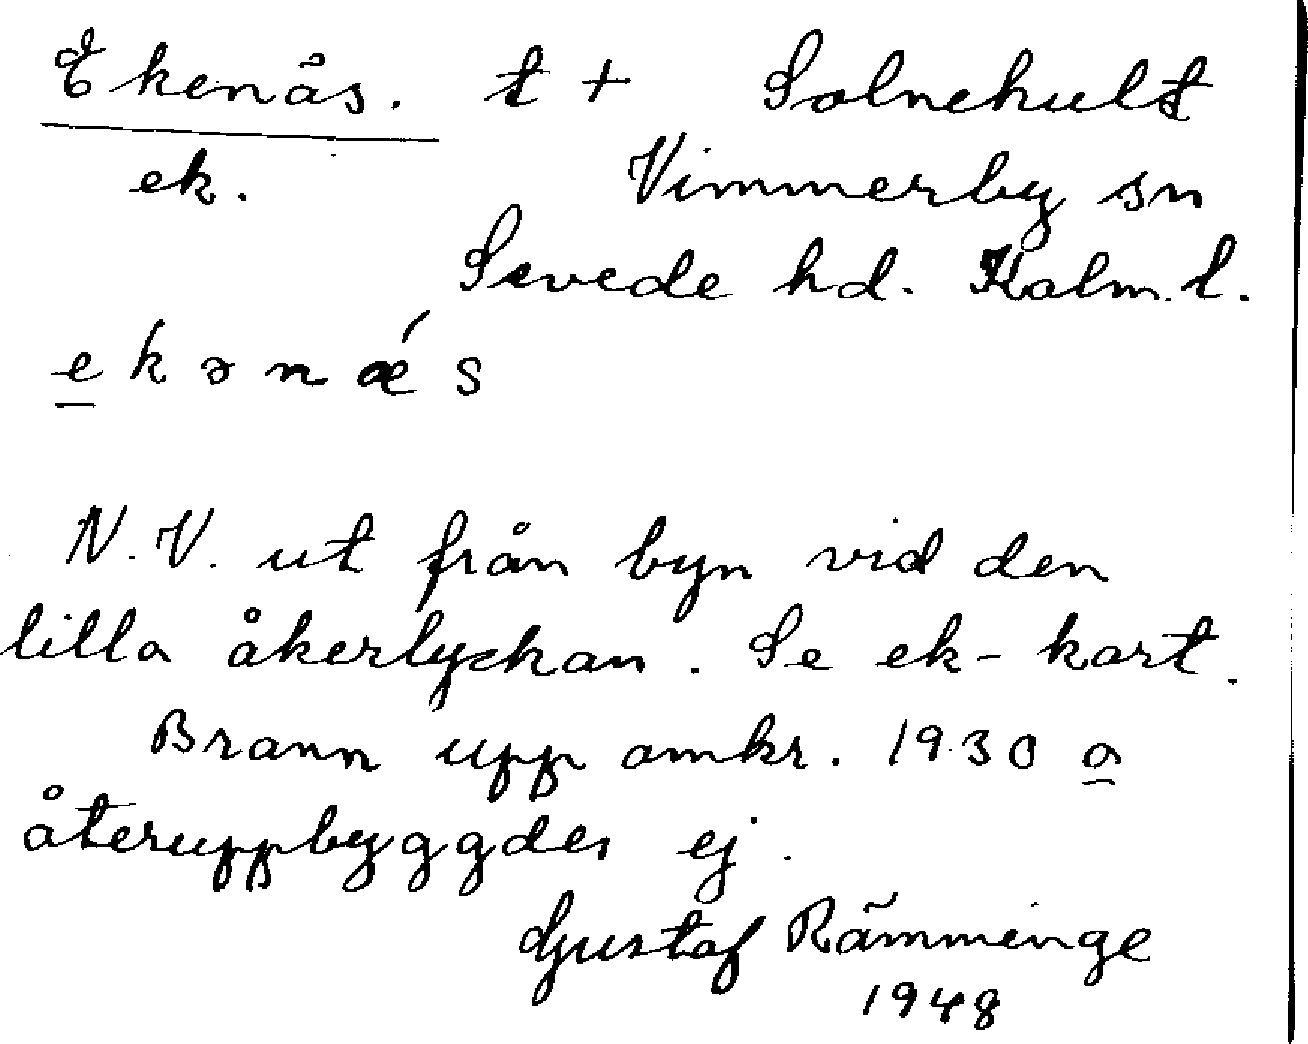 Ekenäs. t + Solnehult
ek. Vimmerby sn
Sevede hd. Kalm. l.
e k ə n ǽ s
N.V. ut från byn vid den
lilla åkerlyckan. Se ek-kart.
Brann upp omkr. 1930 o
återuppbyggdes ej.
Gustaf Rämminge
1948